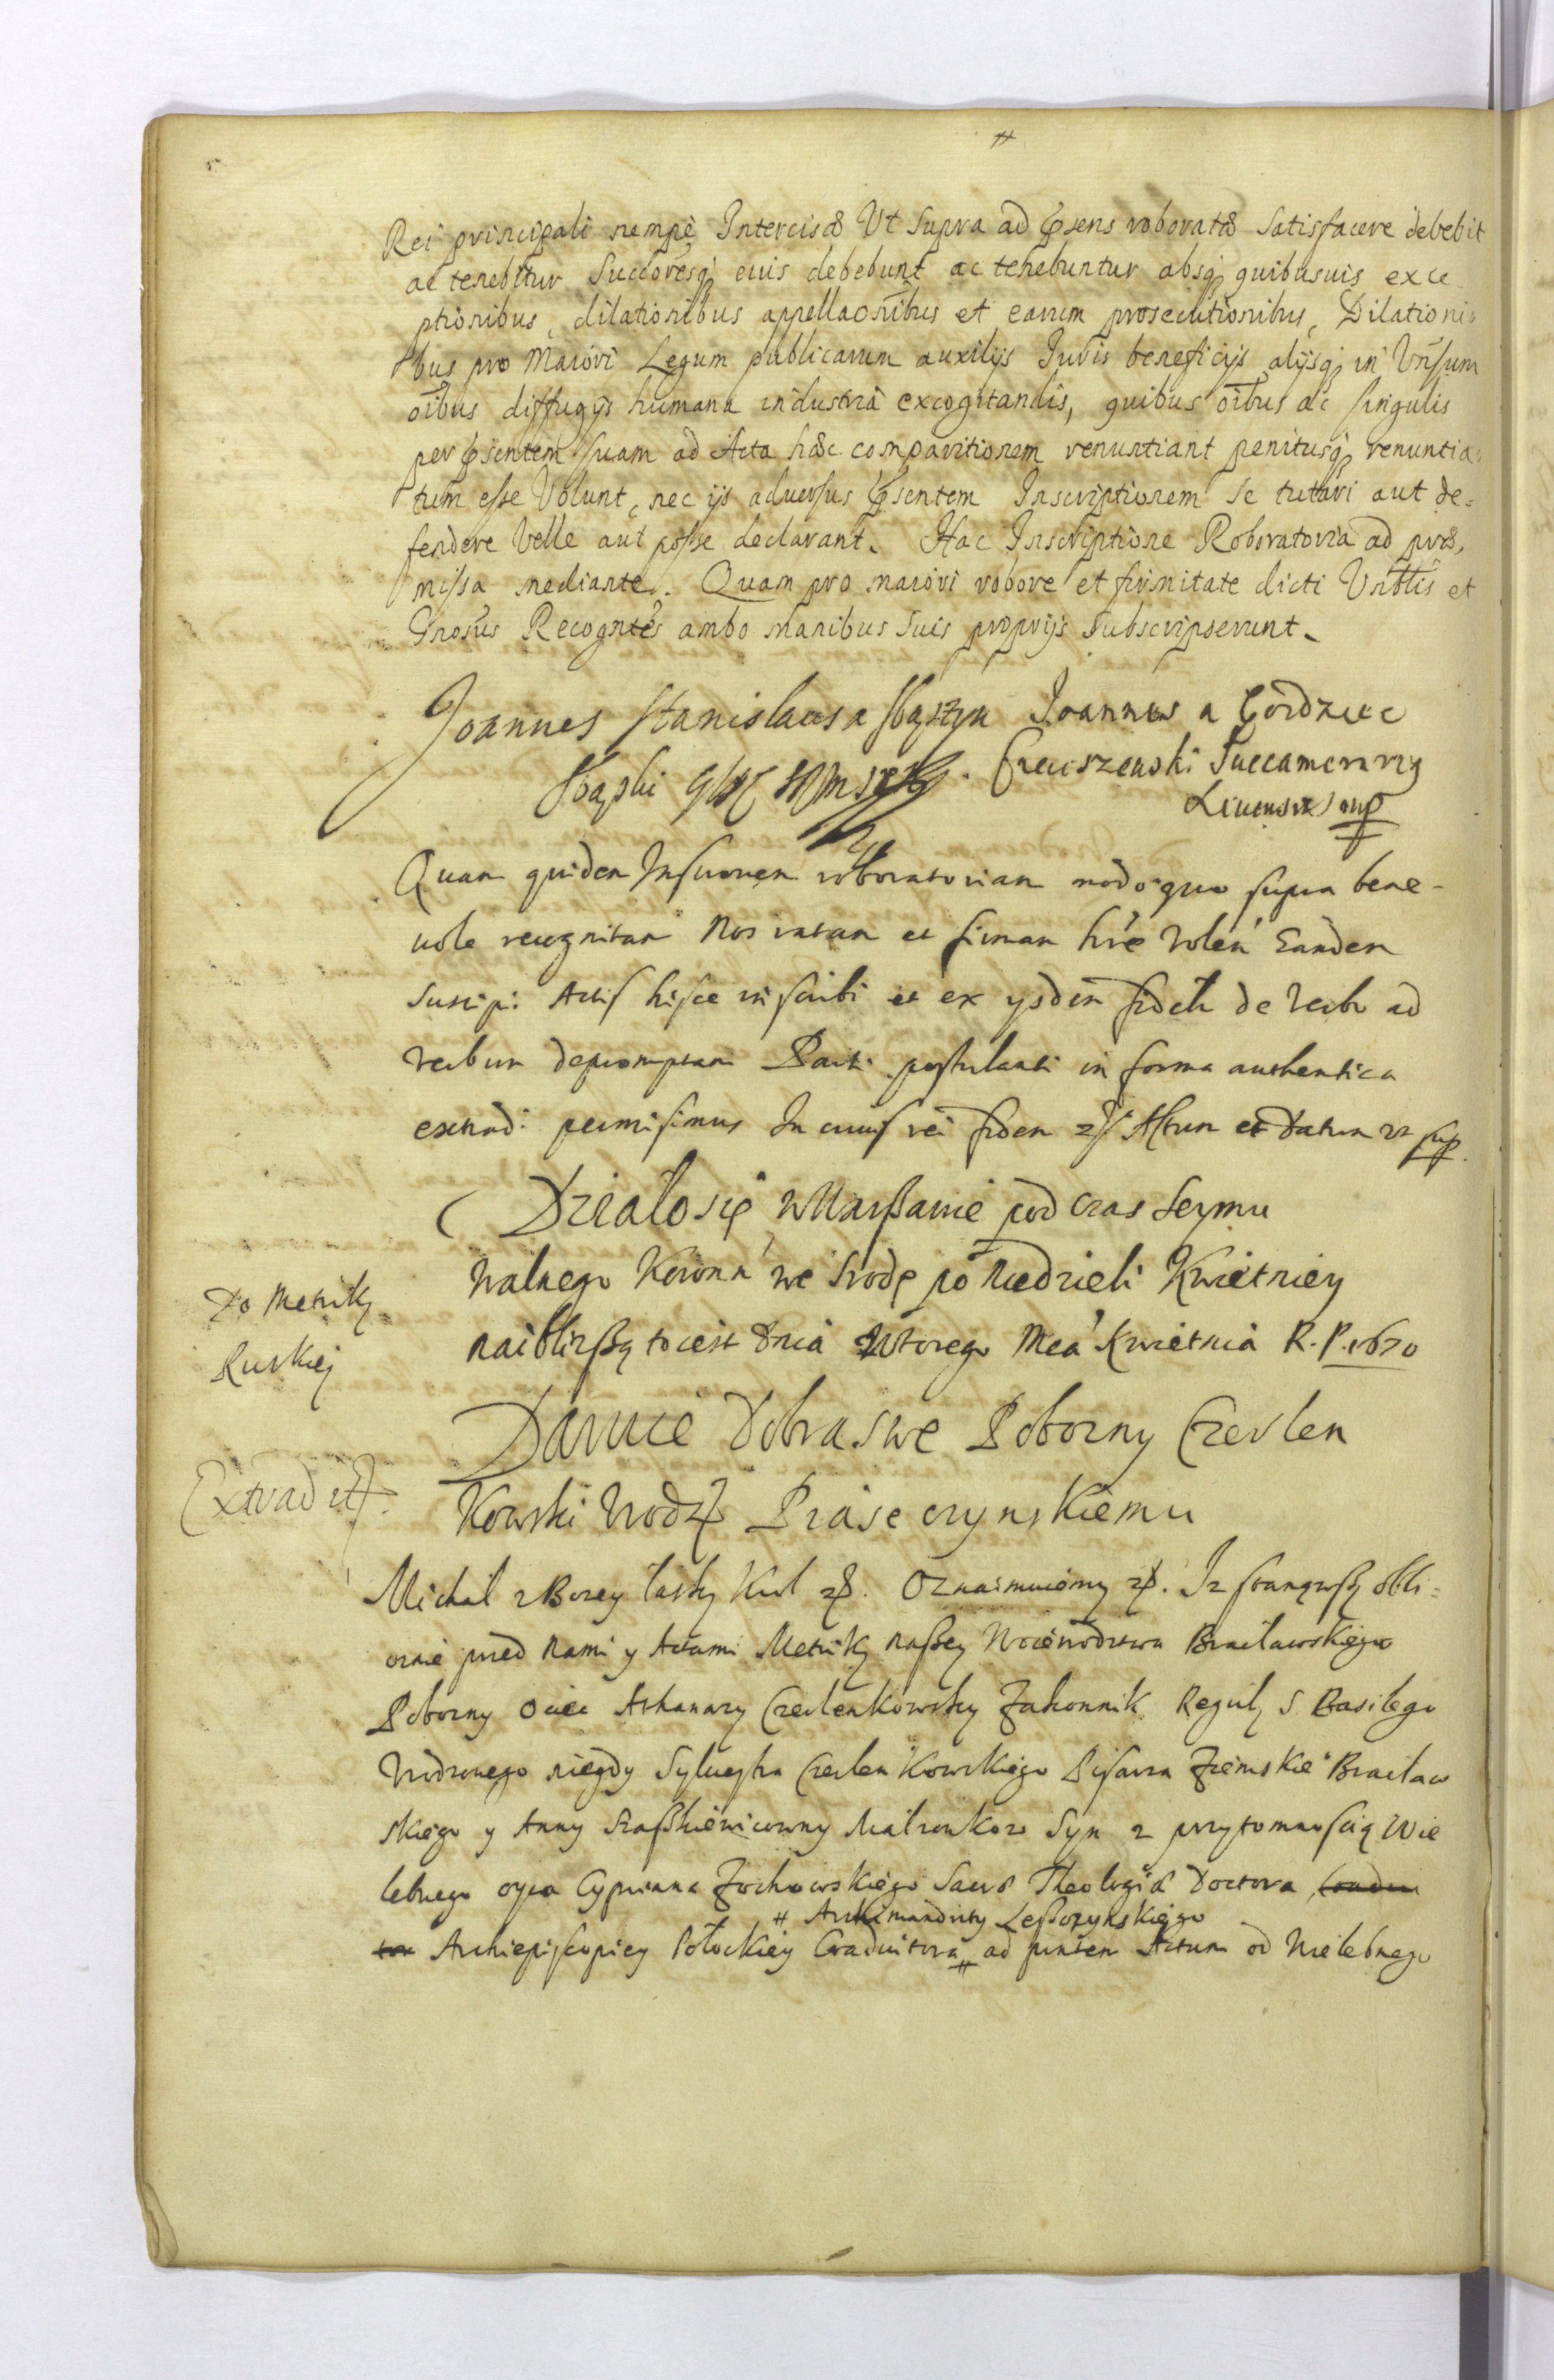 Rei principali nempè Intercisæ Ut supra ad p̃sens roboratæ satisfacere debebit
ac tenebitur Succoresq; eius debebunt ac tenebuntur absq; quibusuis exce
ptionibus, dilationibus appellaõnibus et earum prosecutionibus, Dilationi=
bus pro Maiori Legum publicarum auxilijs Iuris beneficijs alijsq; in Vn̄sum
oībus diffugijs humana industria excogitandis, quibus oībus ac singulis
per p̃sentem suam ad Acta hæc comparitionem renuntiant penitusq; renuntia=
tum esse Volunt, nec ijs aduersus p̃sentem Inscriptionem se tutari aut de=
fendere Velle aut posse declarant. Hac Inscriptione Roboratoria ad præ,
missa mediante. Quam pro maiori robore et firmitate dicti Vrbīlis et
Gnosus Recogn̄tes ambo manibus suis proprijs subscripserunt.
Joannes Stanislaus a Sbąszyn Joannes a
Sbąski Succamerarius
Liuensis mp
Quam quidem Inscriōnem roboratoriam modo quo supra bene-
uole recognitam Nos ratam et firmam hr̄e volen̄ Eandem
Suscipi Actis hisce inscribi et ex ysdem fidelr̄ de verbo ad
verbum depromptam Parti postulanti in forma authentica
extradi permisimus In cuius rei fidem Actum et datum vt sup
Działo się w Warszawie pod czas Seymu
Walnego Koronn̄ we Srodę po Niedzieli Kwietniey
naiblizszą to iest dnia Wtorego Mca Kwietnia R. P. 1670
Do Metriky
Ruskiej
Daruie Dobra swe Pobozny Czerlen
kowski Urodz Piaseczynskiemu
Extradit
Michał z Bozey łasky Krol Oznaimuiemy Iz stanąwszy obli=
cznie przed Nami y Actami Metriky naszey Woiewodztwa Bracławskiego
Pobozny Ociec Athanazy Czerlenkowsky Zakonnik Reguły S. Basilego
Urodzonego niegdy Syluestra Czerlenkowskiego Pisarza Ziemskie Bracław
skiego y Anny Małzonkow Syn z przytomnoscią Wie
lebnego oyca Cypriana Zochowskiego Sacræ Theologiæ Doctora
# Archimandrity Leszczynskiego
Archiepiscopiey Połockiey Coadiutora # ad p̃ntem Actum od Wielebnego